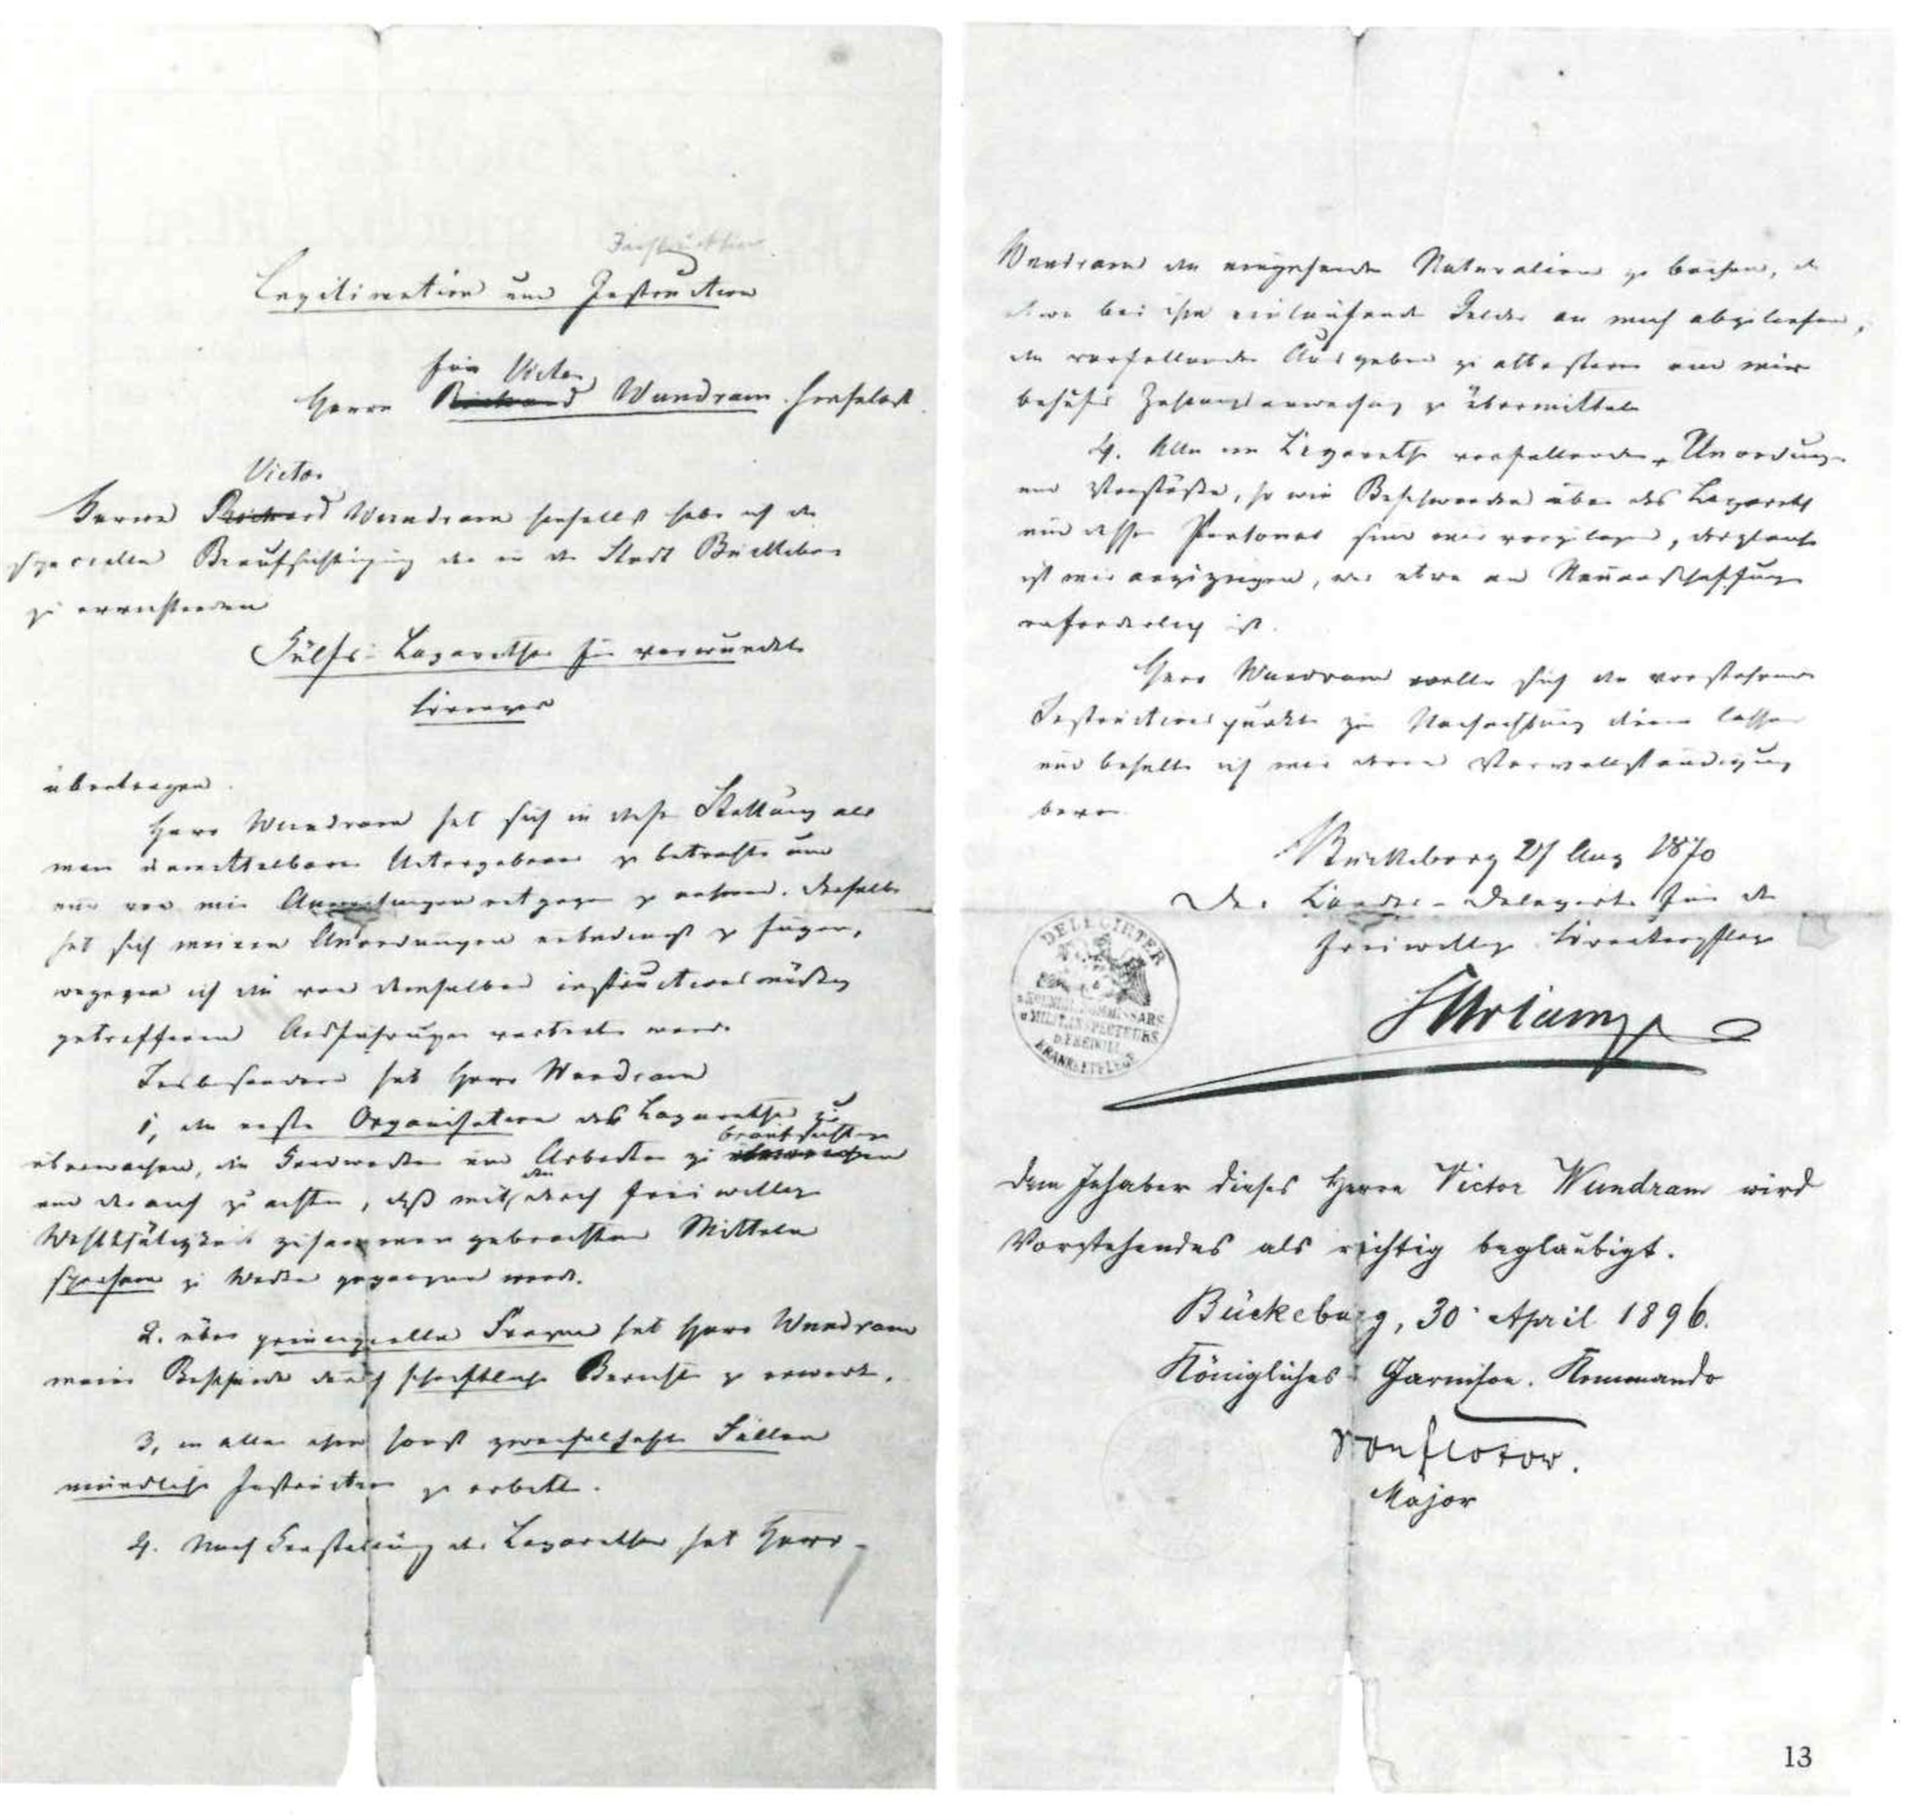 Instruktion
Legitimation und Instruction
für Victor
Herrn Richard Wundram hieselbst.
Victor
Herrn Richard Wundram hieselbst habe ich die
specielle Beaufsichtigung der in der Stadt Bückeburg
zu errichtenden
Hülfs-Lazarethe für verwundete
Krieger
übertragen.
Herr Wundram hat sich in dieser Stellung als
mein unmittelbarer Untergebener zu betrachten und
nur von mir Anweisungen entgegen zu nehmen. Derselbe
hat sich meinen Anordnungen unbedingt zu fügen,
wogegen ich die von demselben instructionsmäßig
getroffenen Ausführungen vertreten werde.
Insbesondere hat Herr Wundram
1, die erste Organisation des Lazareths zu
beaufsichtigen
überwachen, die Handwerker und Arbeiter zu überwachen
den
und darauf zu achten, daß mit durch freiwillige
Wohlthätigkeit zusammen gebrachten Mitteln
sparsam zu Werke gegangen werde.
2. über principielle Fragen hat Herr Wundram
meine Bescheide durch schriftliche Berichte zu erwirken.
3, in allen ihm sonst zweifelhaften Fällen
mündliche Instruction zu erbitten.
4. Nach Herstellung der Lazarethe hat Herr
Wundram die eingehenden Naturalien zu buchen, die
etwa bei ihm einlaufenden Gelder an mich abzuliefern,
die vorfallenden Ausgaben zu attestiren und mir
behufs Zahlungsanweisung zu übermitteln
4. Alle im Lazareth vorfallenden Unordnungen
und Verstöße, so wie Beschwerden über das Lazareth
und dessen Personal sind mir vorzulegen, desgleichen
ist mir anzuzeigen, was etwa an Neuanschaffungen
erforderlich ist.
Herr Wundram wolle sich die vorstehenden
Instructionspunkte zur Nachachtung dienen lassen
und behalte ich mir deren Vervollständigung
bevor.
Bückeburg 27 Aug 1870
Der Landes-Delegirte für die
freiwillige Krankenpflege
DELEGIETER
D. KÖNIGL. COMMISSARS
U. MILIT. INSPECTEURS
D. FREIWILL.
KRANKENPFLEGE
Dem Inhaber dieses Herrn Victor Wundram wird
Vorstehendes als richtig beglaubigt.
Bückeburg, 30. April 1896.
Königliches Garnison. Kommando
von Flotow.
Major
13